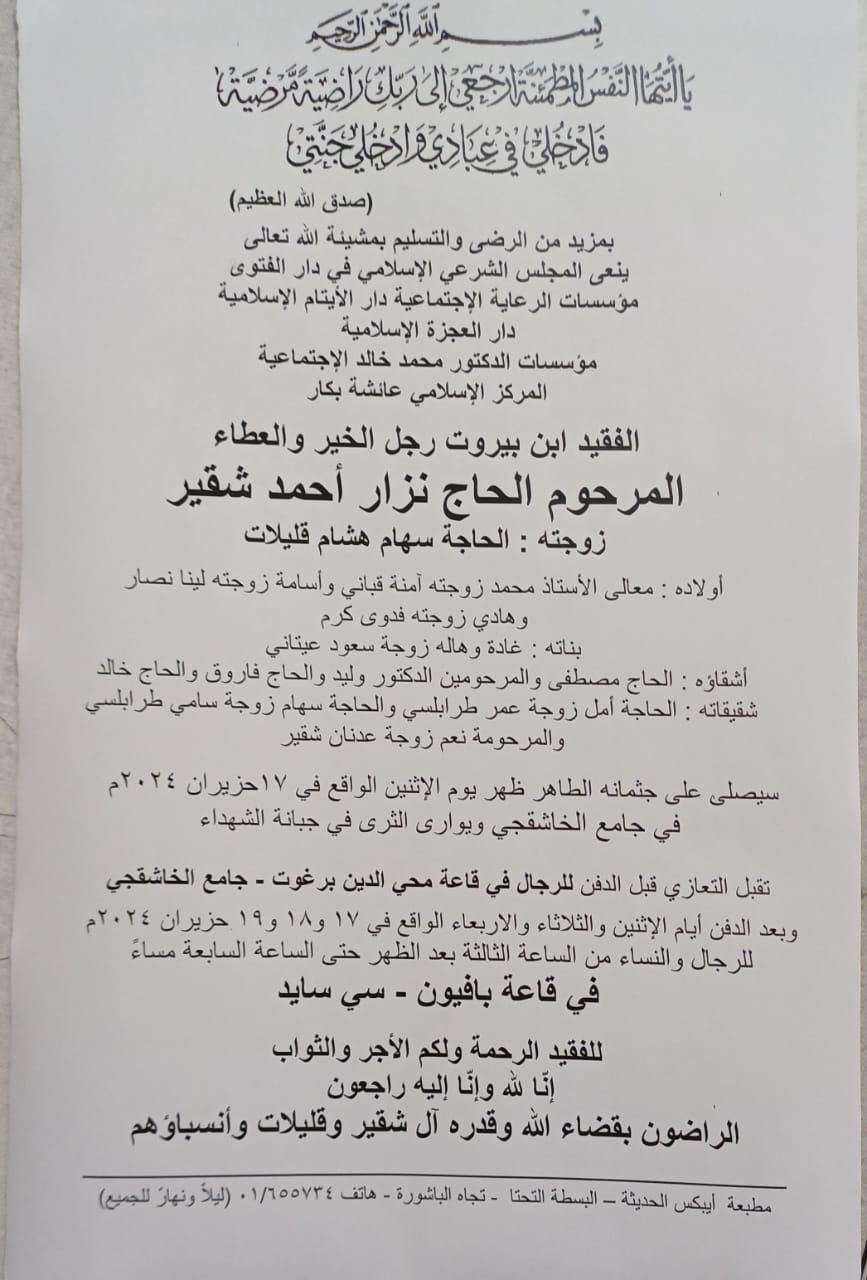 بِسْمِ اللَّهِ الرَّحْمَنِ الرَّحِيمِ
يَا أَيَّتُهَا النَّفْسُ الْمُطْمَئِنَّةُ ارْجِعِي إِلَى رَبِّكِ رَاضِيَةً مَّرْضِيَّةً
فَادْخُلِي فِي عِبَادِي وَادْخُلِي جَنَّتِي
(صدق الله العظيم)
بمزيد من الرضى والتسليم بمشيئة الله تعالى
ينعى المجلس الشرعي الإسلامي في دار الفتوى
مؤسسات الرعاية الإجتماعية دار الأيتام الإسلامية
دار العجزة الإسلامية
مؤسسات الدكتور محمد خالد الإجتماعية
المركز الإسلامي عائشة بكار
الفقيد ابن بيروت رجل الخير والعطاء
المرحوم الحاج نزار أحمد شقير
زوجته : الحاجة سهام هشام قليلات
أولاده : معالى الأستاذ محمد زوجته آمنة قباني وأسامة زوجته لينا نصار
وهادي زوجته فدوى كرم
بناته : غادة وهاله زوجة سعود عيتاني
أشقاؤه : الحاج مصطفى والمرحومين الدكتور وليد والحاج فاروق والحاج خالد
شقيقاته : الحاجة أمل زوجة عمر طرابلسي والحاجة سهام زوجة سامي طرابلسي
والمرحومة نعم زوجة عدنان شقير
سيصلى على جثمانه الطاهر ظهر يوم الإثنين الواقع في ١٧حزيران ٢٠٢٤م
في جامع الخاشقجي ويوارى الثرى في جبانة الشهداء
تقبل التعازي قبل الدفن للرجال في قاعة محي الدين برغوت - جامع الخاشقجي
وبعد الدفن أيام الإثنين والثلاثاء والاربعاء الواقع في ١٧ و١٨ و١٩ حزيران ٢٠٢٤م
للرجال والنساء من الساعة الثالثة بعد الظهر حتى الساعة السابعة مساءً
في قاعة بافيون - سي سايد
للفقيد الرحمة ولكم الأجر والثواب
إنّا لله وإنّا إليه راجعون
الراضون بقضاء الله وقدره آل شقير وقليلات وأنسباؤهم
مطبعة أيبكس الحديثة – البسطة التحتا - تجاه الباشورة - هاتف ٠١/٦٥٥٧٣٤ (ليلاً ونهارً للجميع)